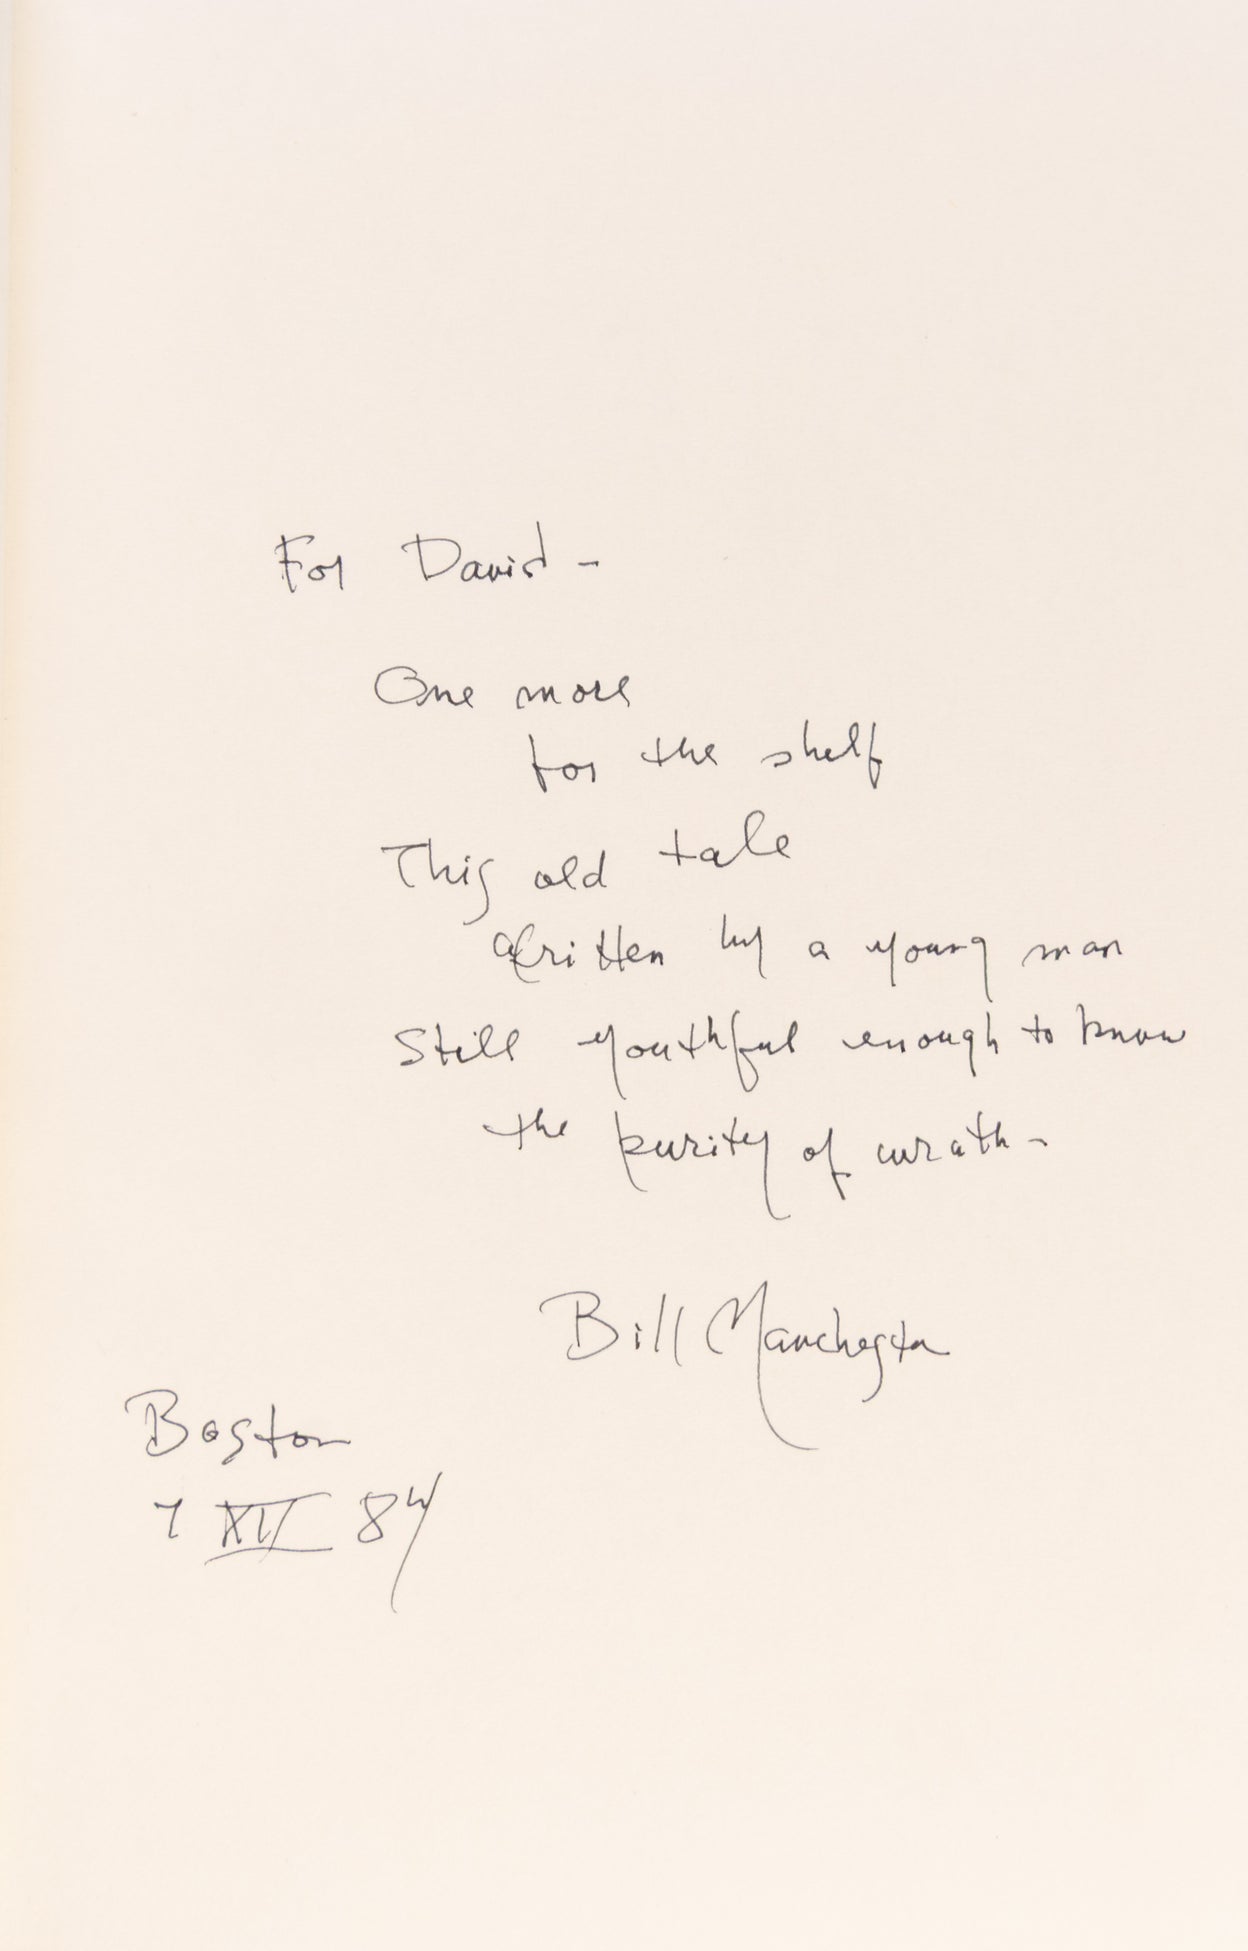 For David -
One more
for the shelf
This old tale
Written by a young man
Still youthful enough to know
the purity of wrath -
Bill Manchester
Boston
7 XII 84